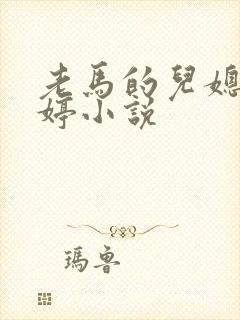 老馬的兒媳
婷小説
瑪魯